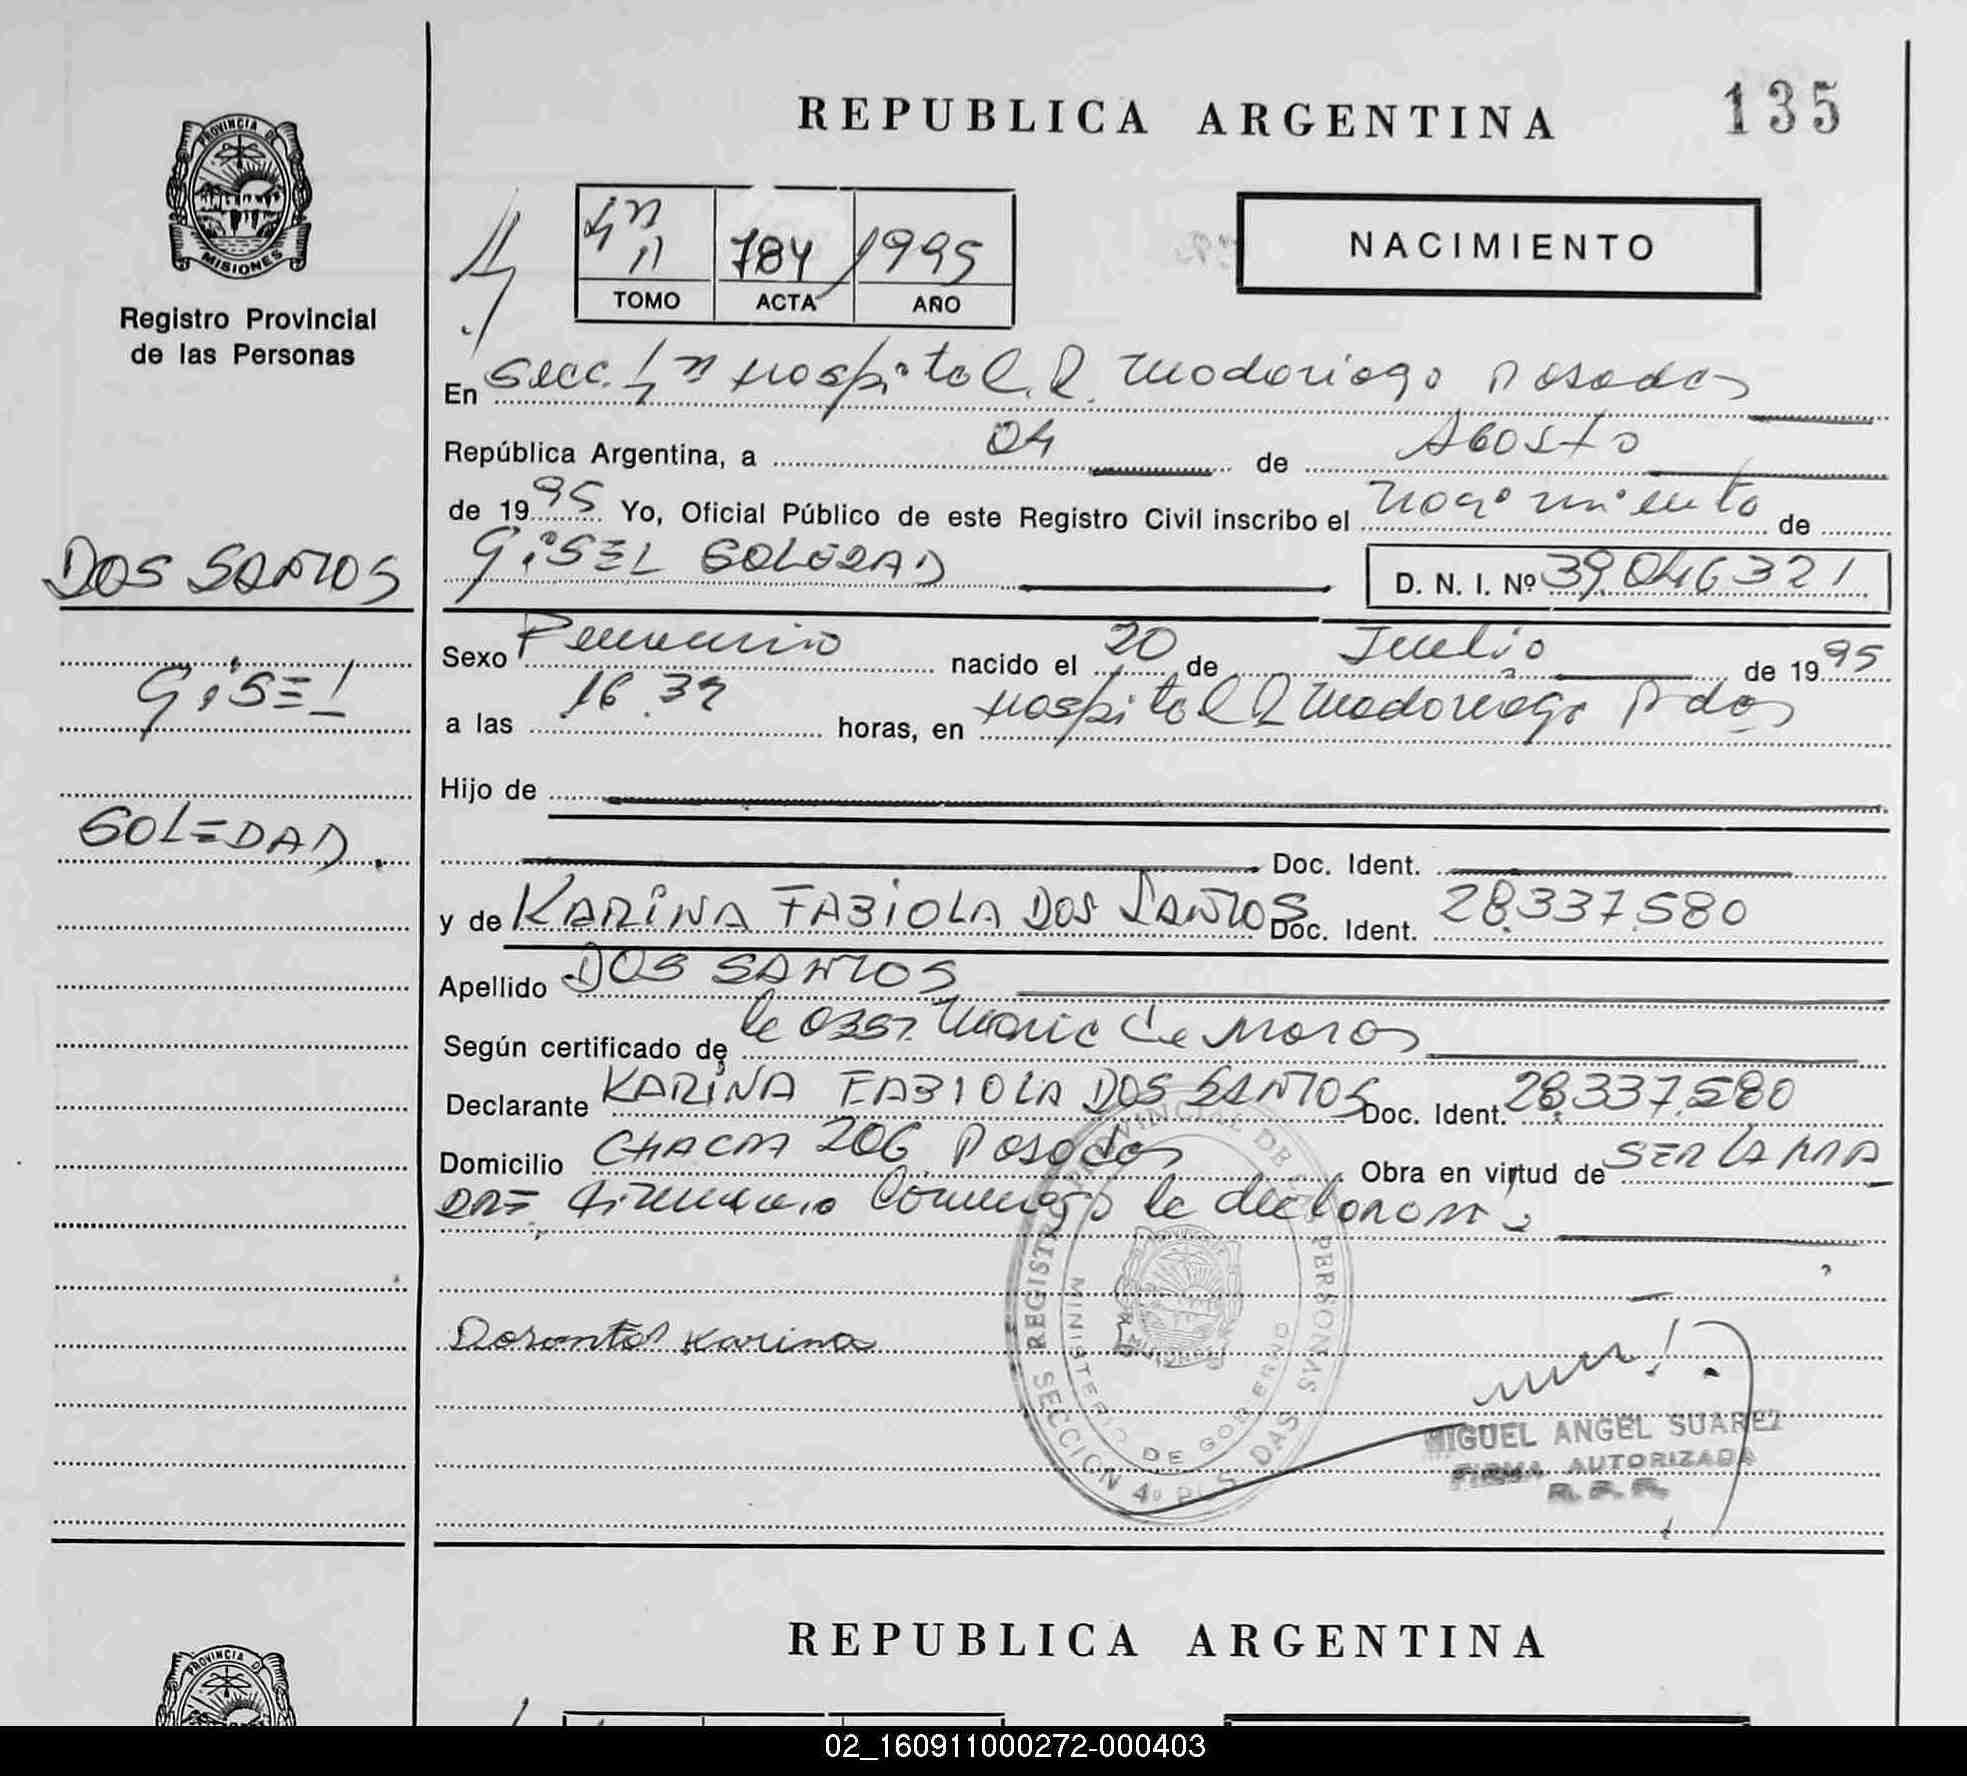 REPUBLICA ARGENTINA
135
PROVINCIA DE
MISIONES
Registro Provincial
de las Personas
784 1995
TOMO ACTA AÑO
NACIMIENTO
En Secc. Hospital R. Madariaga Posadas
República Argentina, a 04 de Agosto
de 1995 Yo, Oficial Público de este Registro Civil inscribo el nacimiento de
GISEL SOLEDAD D. N. I. Nº 39.046321
DOS SANTOS
GISEL
SOLEDAD.
Sexo Femenino nacido el 20 de Julio de 1995
a las 16.32 horas, en Hospital R Madariaga Pdas
Hijo de
Doc. Ident.
y de KARINA FABIOLA DOS SANTOS Doc. Ident. 28.337.580
Apellido DOS SANTOS
Según certificado de la Obst. Maria de
Declarante KARINA FABIOLA DOS SANTOS Doc. Ident. 28.337.580
Domicilio CHACRA 206 Posadas Obra en virtud de SER LA MA
DRE. conmigo la declarante
Dosantos Karina
REGISTRO PROVINCIAL DE LAS PERSONAS
MINISTERIO DE GOBIERNO
SECCION 4º POSADAS
MIGUEL ANGEL SUAREZ
FIRMA AUTORIZADA
R. P. P.
REPUBLICA ARGENTINA
PROVINCIA DE
02_160911000272-000403